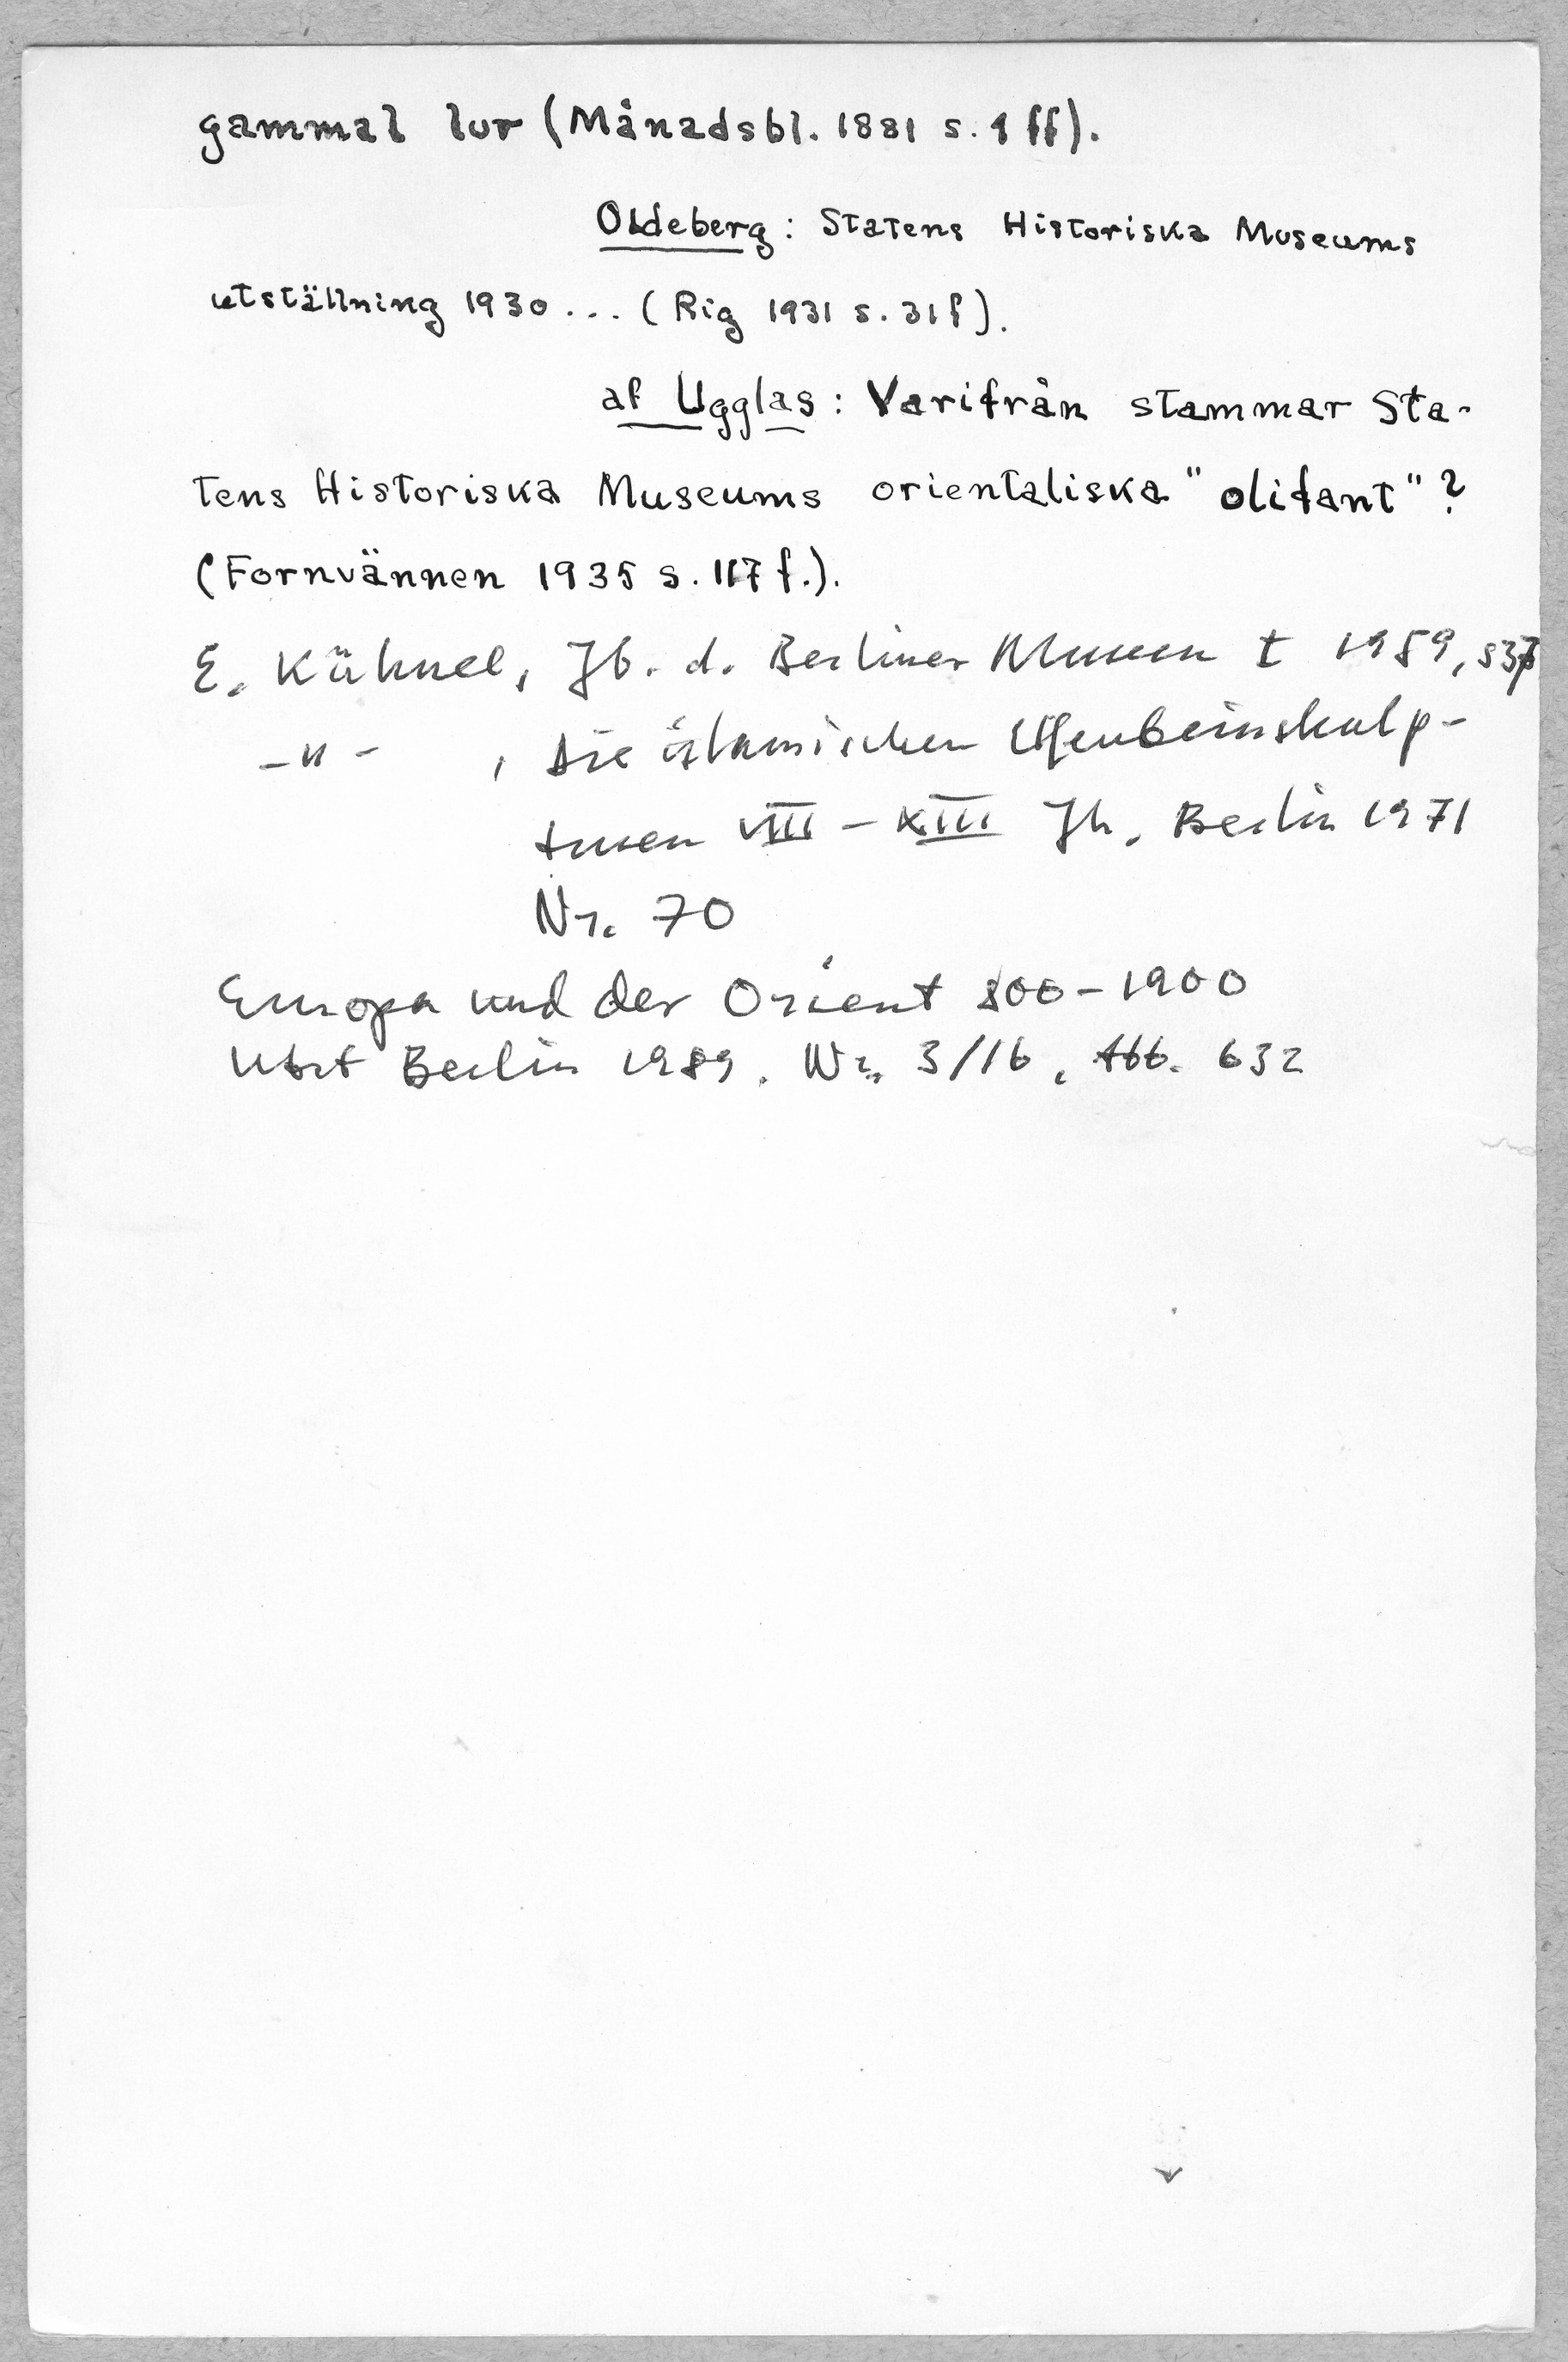 gammal lur (Månadsbl. 1881 s. 1 ff).
Oldeberg: Statens Historiska Museums
utställning 1930 ... (Rig 1931 s. 31 f).
af Ugglas: Varifrån stammar Sta-
tens Historiska Museums orientaliska "olifant"?
(Fornvännen 1935 s. 117 f.).
E. Kühnel, Jb. d. Berliner Museen I 1959, s 37
-"- , Die islamischen Elfenbeinskulp-
turen VIII - XIII Jh. Berlin 1971
Nr. 70
Europa und der Orient 800-1900
Utst Berlin 1989. Nr. 3/16, Abb. 632